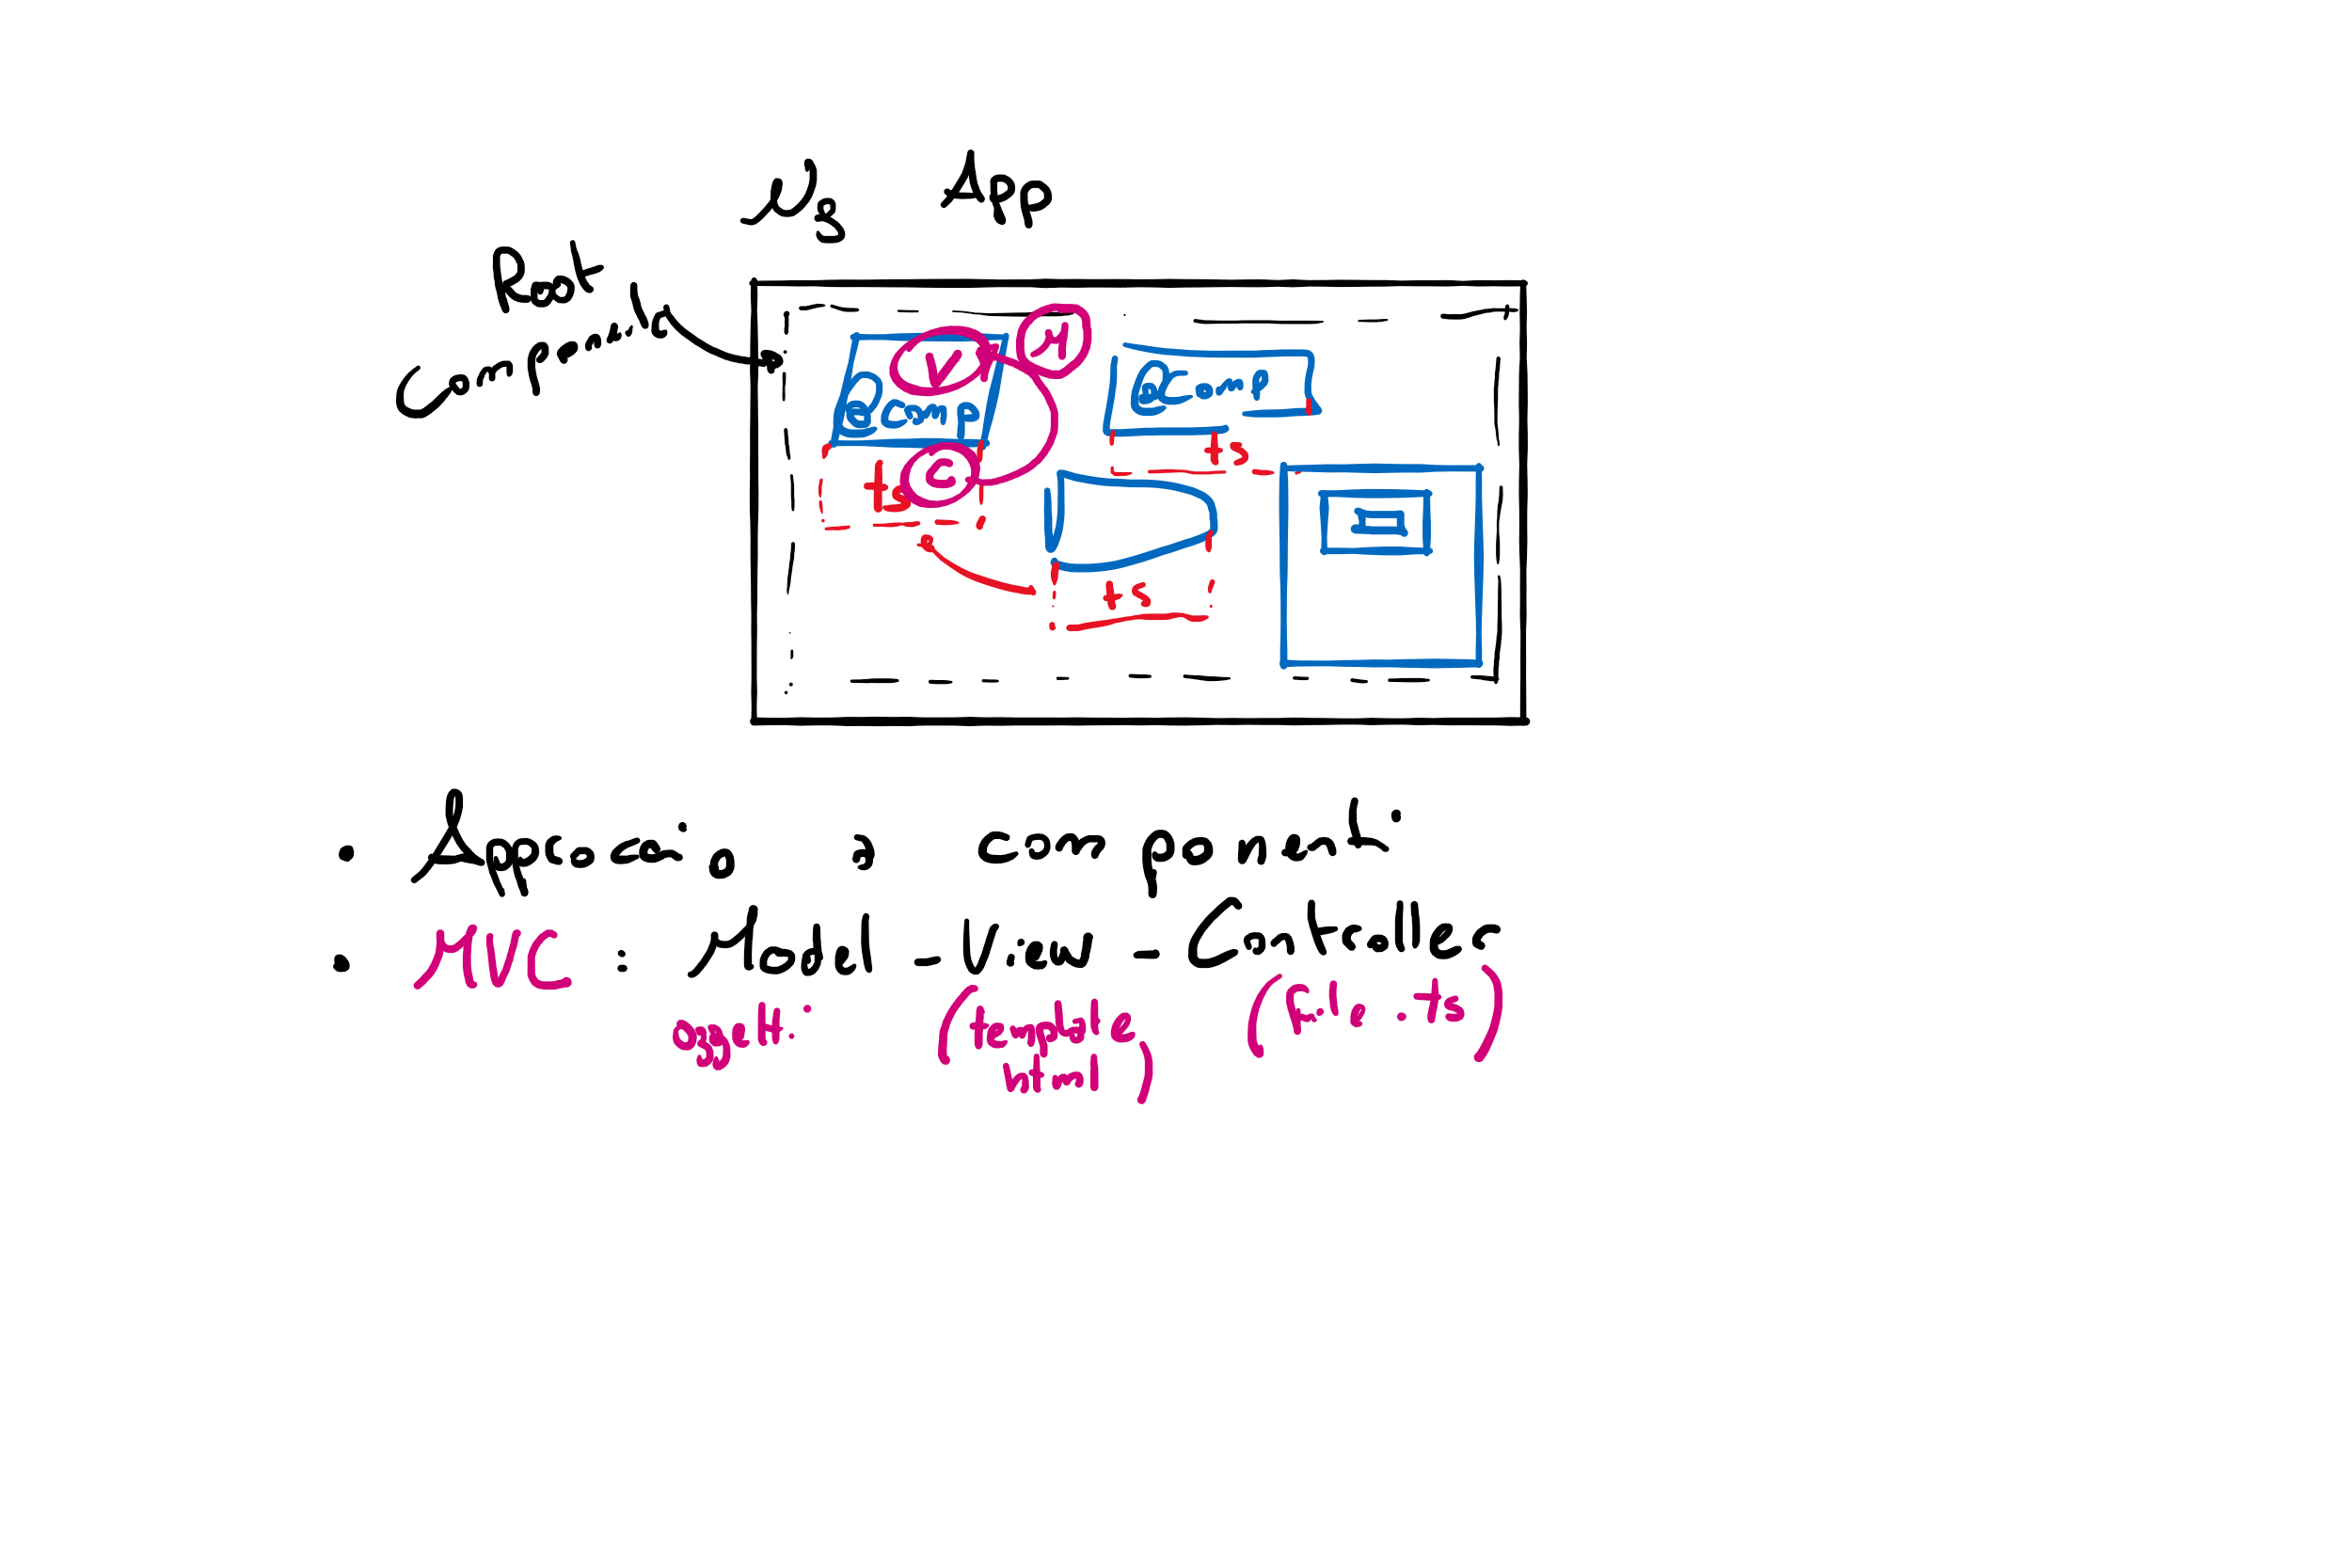 Ng App
Root
Componente
V M
@Comp
@Comp
C
ts
ts
ts
• Approccio a componenti
• MVC : Model - View - Controller
oggetti (template (file .ts)
html)